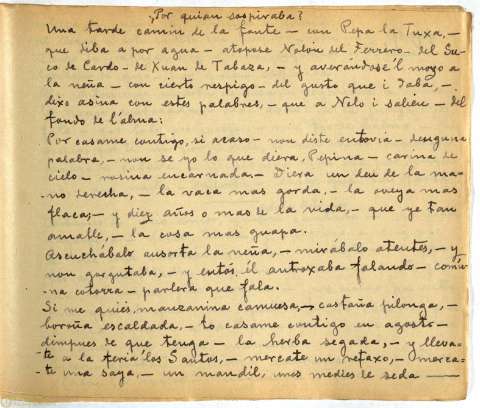 ¿Por quian sospiraba?
Una tarde camin de la fonte - con Pepa la Tuxa, -
que diba a por agua - atopose Nolón del Ferrero - del Sue-
co de Cardo - de Xuan de Tabaza, - y averándose'l mozo a
la neña - con cierto respigo - del gusto que i daba, -
dixo asina con estes palabres, - que a Nolo i salien - del
fondo de l'alma:
Por casame contigo, si acaso - non diste entovía - denguna
palabra, - non se yo lo que diera, Pepina - carina de
cielo - rosina encarnada. - Diera un deu de la ma-
no derecha, - la vaca mas gorda, - la oveya mas
flaca, - y diez años o mas de la vida, - que ye tan
amable, - la cosa mas guapa.
Ascuchábalo ausorta la neña, - mirábalo atentes, - y
non gorgutaba, - y entós él antroxaba falando - comu
na cotorra - parlera que fala.
Si me quiés, manzanina camuesa, - castaña pilonga, -
boroña escaldada, - to casame contigo en agosto -
dimpues de que tenga - la herba segada, - y lleva-
te a la feria los Santos, - mercate un refaxo, - merca-
te una saya, - un mandil, unes medies de seda -